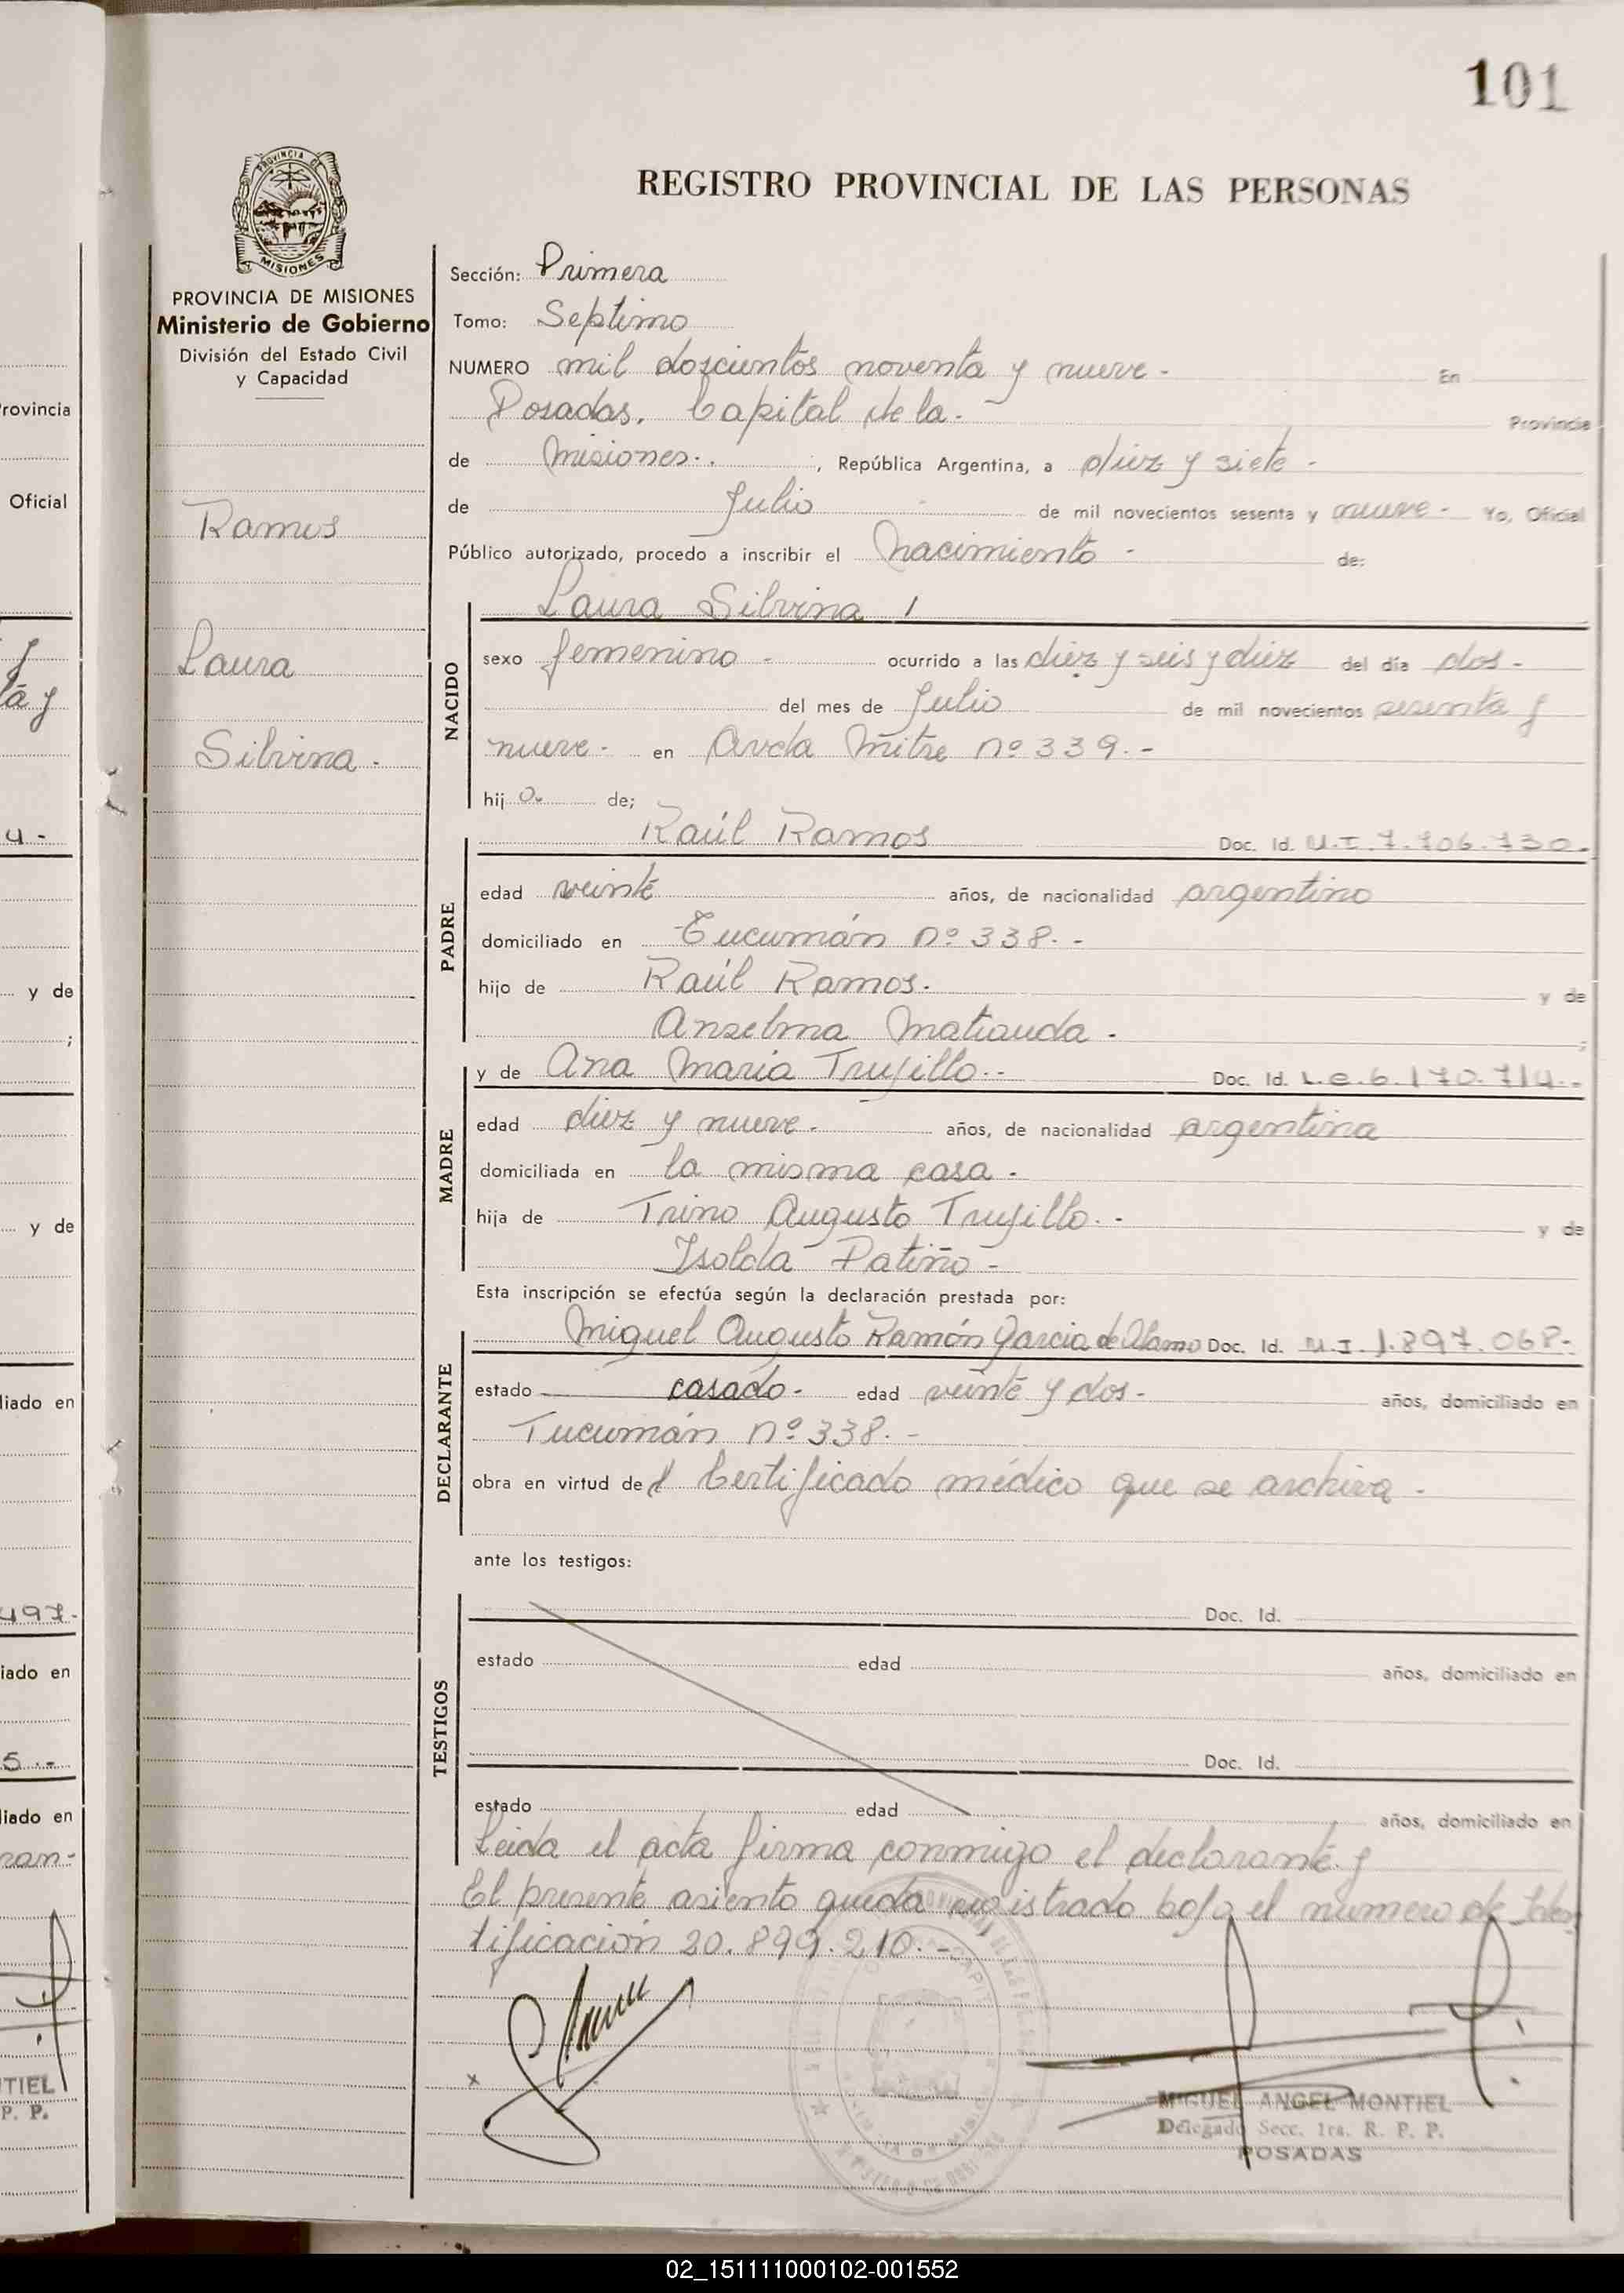 101
REGISTRO PROVINCIAL DE LAS PERSONAS
PROVINCIA DE MISIONES
Ministerio de Gobierno
División del Estado Civil
y Capacidad
Ramos
Laura
Silvina -
Sección: Primera
Tomo: Septimo
NUMERO mil doscientos noventa y nueve - En
Posadas, Capital de la - Provincia
de Misiones - , República Argentina, a diez y siete -
de Julio de mil novecientos sesenta y nueve - Yo, Oficial
Público autorizado, procedo a inscribir el nacimiento - de:
Laura Silvina /
NACIDO
sexo femenino - ocurrido a las diez y seis y diez del día dos -
del mes de Julio de mil novecientos sesenta y
nueve - en Avda Mitre nº 339. -
hij a. de;
Raúl Ramos Doc. Id. M.I. 7.706.730.
PADRE
edad veinte años, de nacionalidad argentino
domiciliado en Tucumán nº 338. -
hijo de Raúl Ramos. y de
Anselma Matiauda - ;
y de Ana Maria Trujillo. - Doc. Id. L.C. 6.170.714. -
MADRE
edad diez y nueve - años, de nacionalidad argentina
domiciliada en la misma casa -
hija de Trino Augusto Trujillo. - y de
Isolda Patiño -
Esta inscripción se efectúa según la declaración prestada por:
Miguel Augusto Ramón Garcia de Olamo Doc. Id. M.I. 1.897.068 -
DECLARANTE
estado casado - edad veinte y dos - años, domiciliado en
Tucumán nº 338. -
obra en virtud del Certificado médico que se archiva -
ante los testigos:
Doc. Id.
TESTIGOS
estado edad años, domiciliado en
Doc. Id.
estado edad años, domiciliado en
Leida el acta firma conmigo el declarante y
El presente asiento queda registrado bajo el numero de Iden
tificación 20.899.210. -
MIGUEL ANGEL MONTIEL
Delegado Secc. 1ra. R. P. P.
POSADAS
02_151111000102-001552